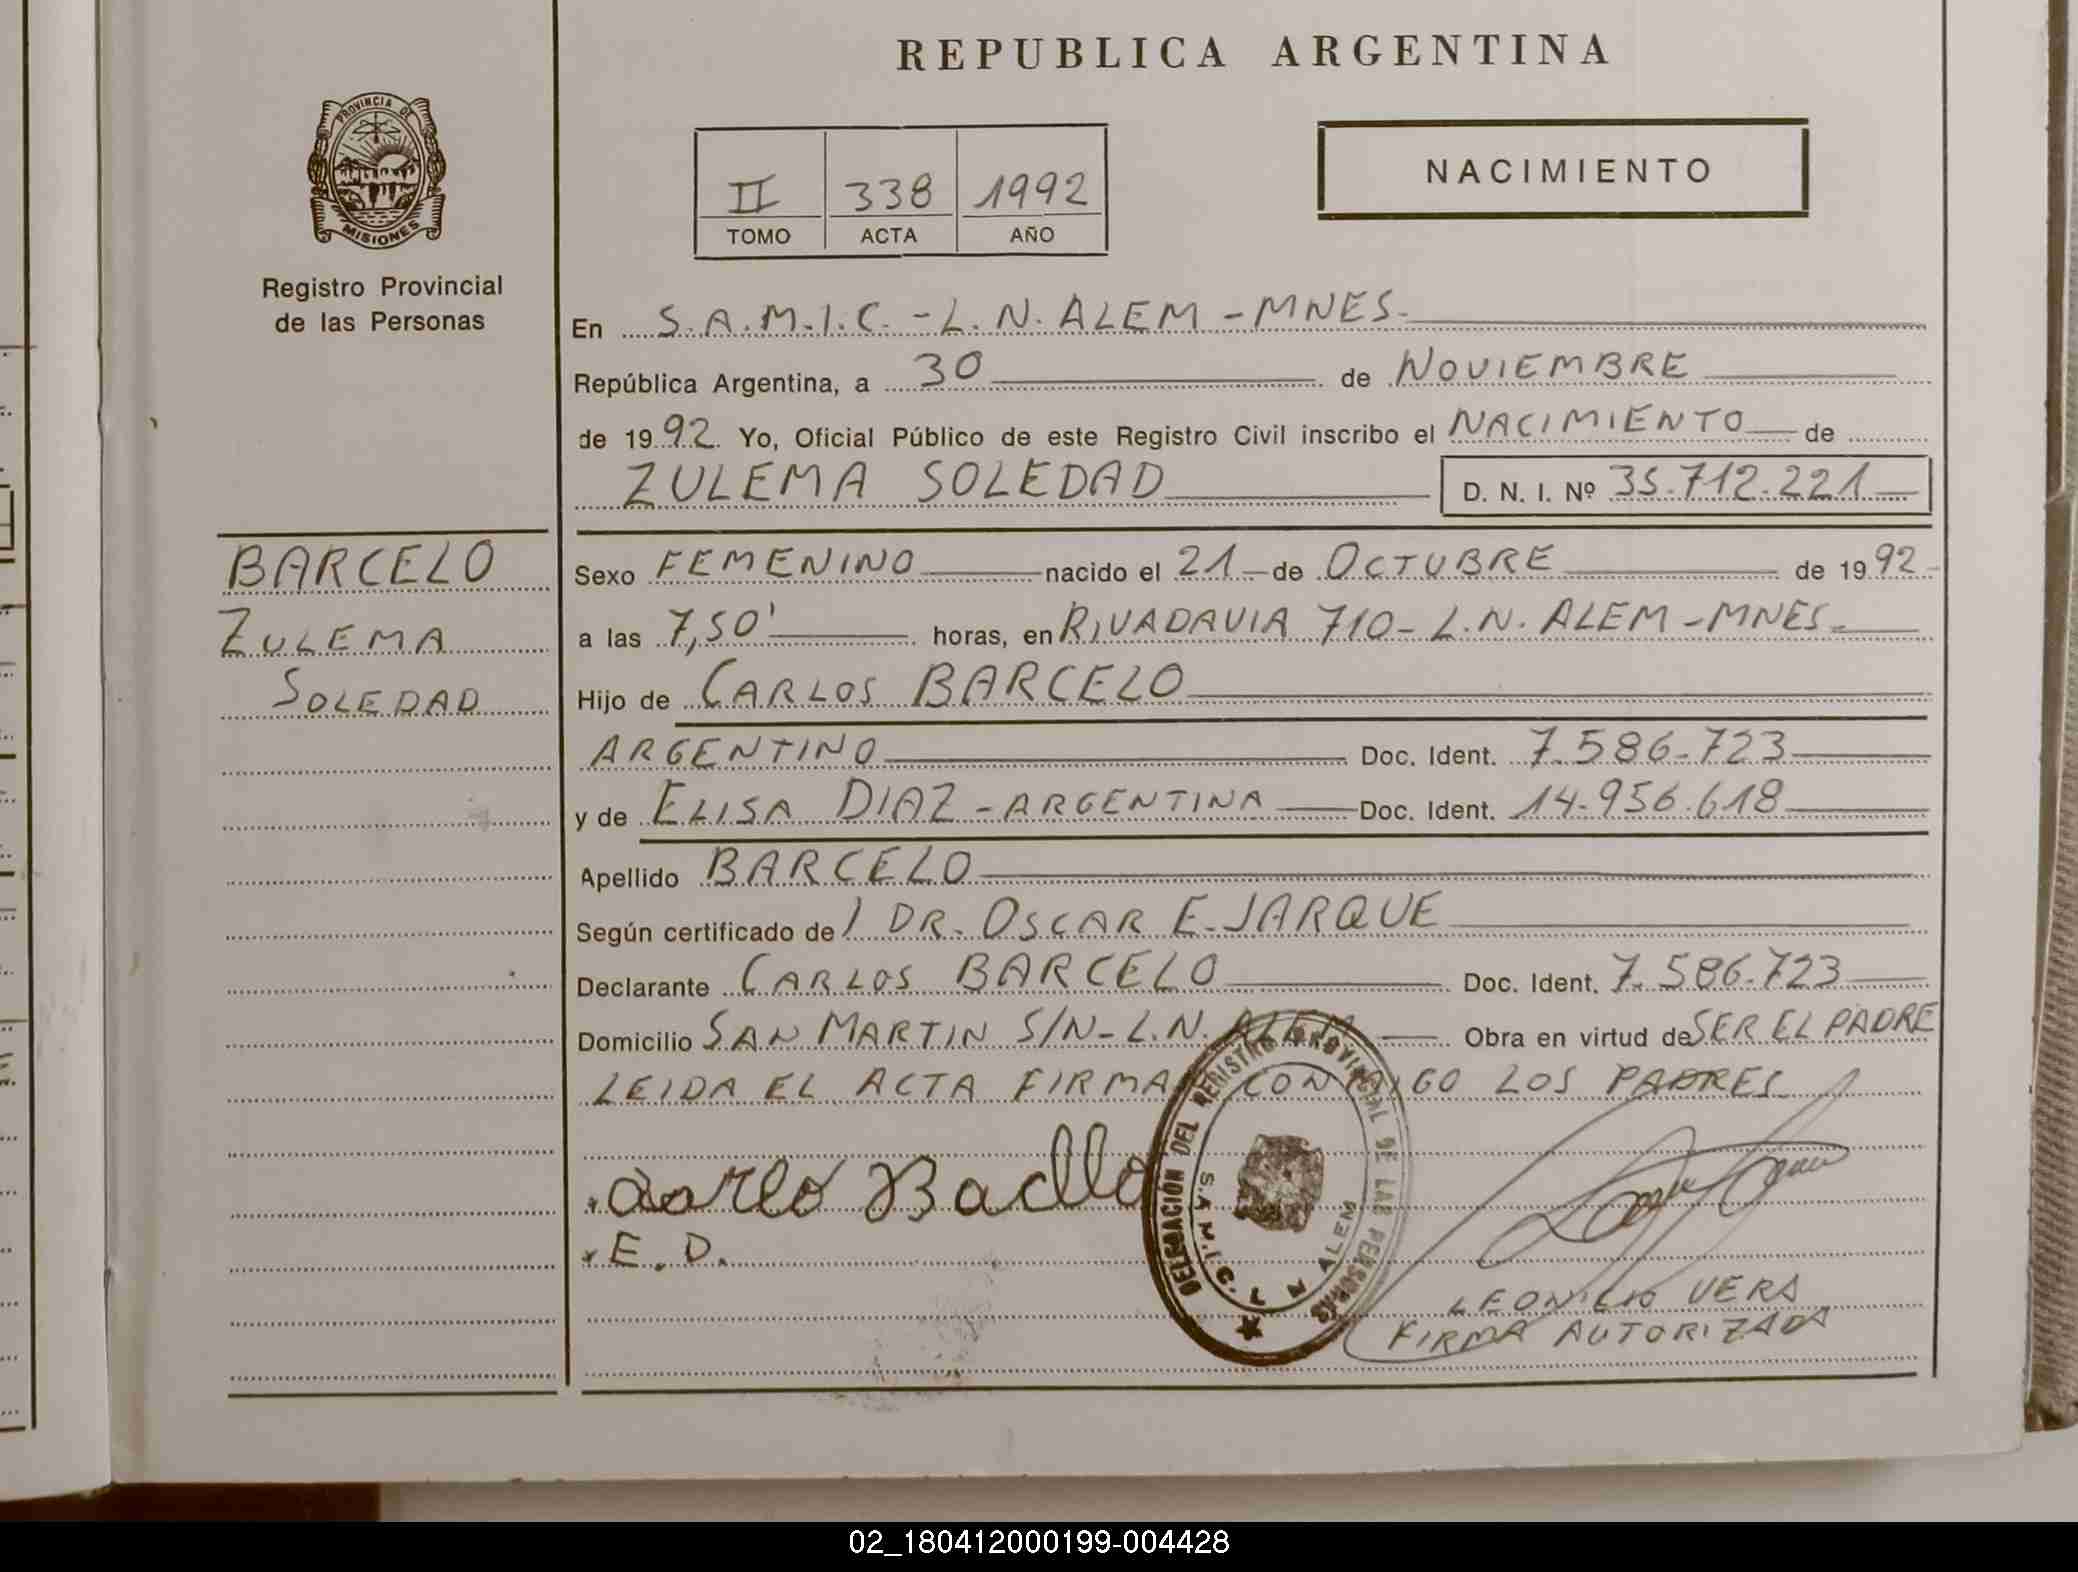 REPUBLICA ARGENTINA
PROVINCIA DE
MISIONES
Registro Provincial
de las Personas
II 338 1992
TOMO ACTA AÑO
NACIMIENTO
En S.A.M.I.C. - L.N. ALEM - MNES.
República Argentina, a 30 de NOVIEMBRE
de 1992. Yo, Oficial Público de este Registro Civil inscribo el NACIMIENTO de
ZULEMA SOLEDAD D. N. I. Nº 35.712.221
BARCELO
ZULEMA
SOLEDAD
Sexo FEMENINO nacido el 21 de OCTUBRE de 1992
a las 7,50' horas, en RIVADAVIA 710 - L.N. ALEM - MNES.
Hijo de CARLOS BARCELO
ARGENTINO Doc. Ident. 7.586.723
y de ELISA DIAZ - ARGENTINA Doc. Ident. 14.956.618
Apellido BARCELO
Según certificado del DR. OSCAR E. JARQUE
Declarante CARLOS BARCELO Doc. Ident. 7.586.723
Domicilio SAN MARTIN S/N - L.N. ALEM Obra en virtud de SER EL PADRE
LEIDA EL ACTA FIRMA CONMIGO LOS PADRES
DELEGACIÓN DEL REGISTRO PROVINCIAL DE LAS PERSONAS
S.A.M.I.C. L N ALEM
E. D.
LEONILIO VERA
FIRMA AUTORIZADA
02_180412000199-004428